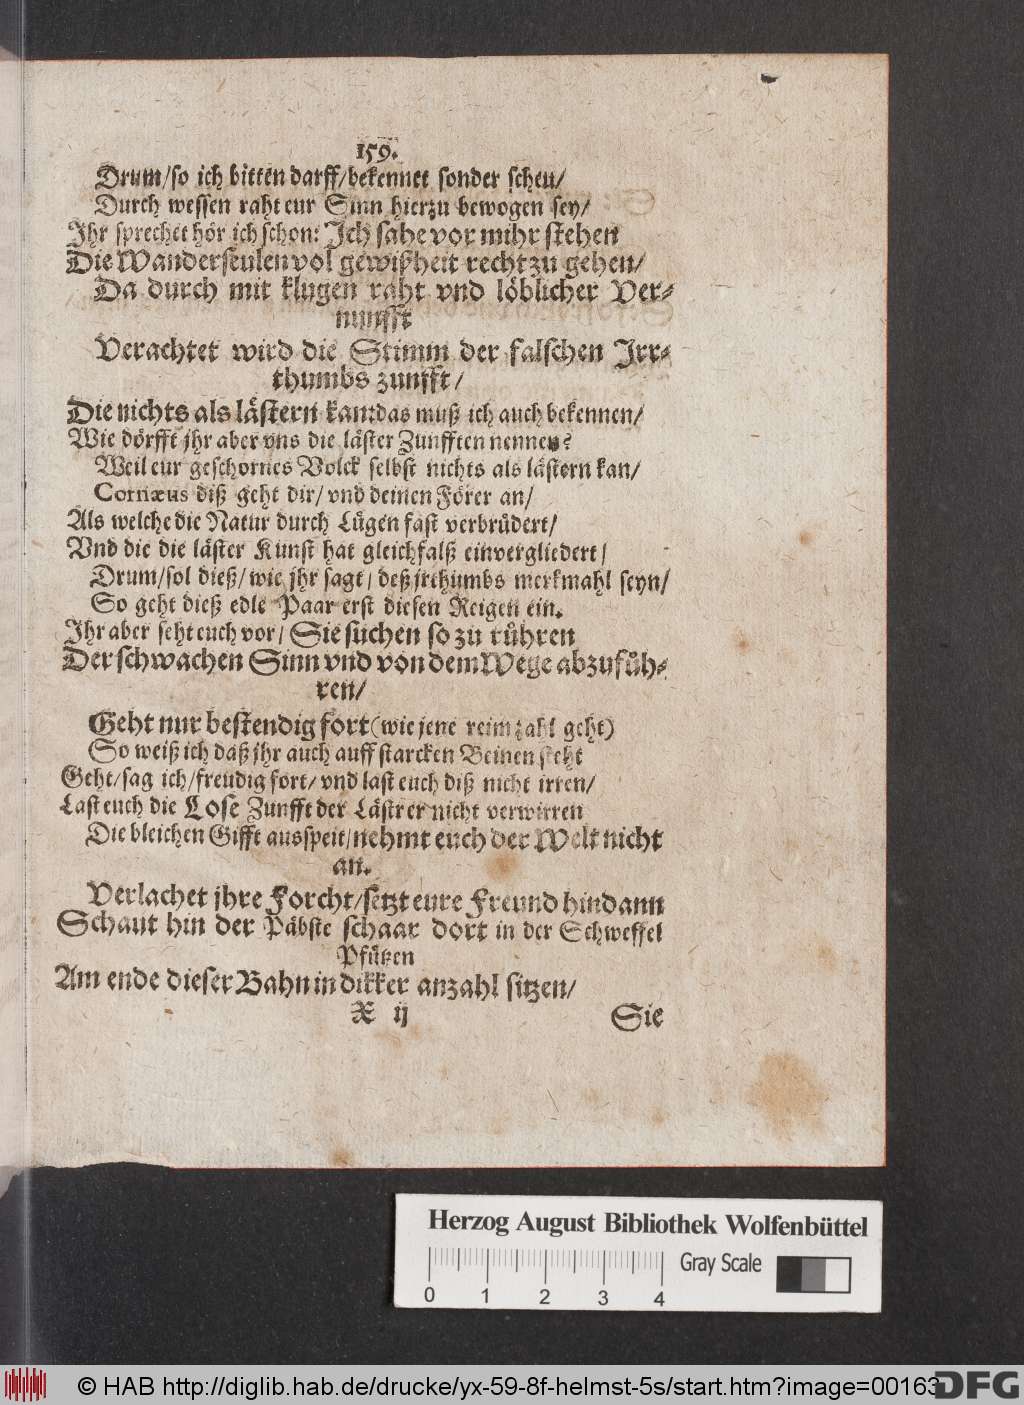 159.
Drum/so ich bitten darff/bekennet sonder scheu/
Durch wessen raht eur Sinn hierzu bewogen sey/
Ihr sprechet hör ich schon: Ich sahe vor mihr stehen
Die Wanderseulen vol gewißheit recht zu gehen/
Da durch mit klugen raht vnd löblicher Ver-
nunfft
Verachtet wird die Stimm der falschen Irr-
thumbs zunfft/
Die nichts als lästern kan: das muß ich auch bekennen/
Wie dörfft jhr aber vns die läster Zunfften nennen?
Weil eur geschornes Volck selbst nichts als lästern kan/
Cornæus diß geht dir/ vnd deinen Förer an/
Als welche die Natur durch Lügen fast verbrüdert/
Vnd die die läster Kunst hat gleichfalß einvergliedert/
Drum/sol dieß/ wie jhr sagt/ deß jrthumbs merkmahl seyn/
So geht dieß edle Paar erst diesen Reigen ein.
Ihr aber seht euch vor/ Sie suchen so zu rühren
Der schwachen Sinn vnd von dem Wege abzufüh-
ren/
Geht nur bestendig fort (wie jene reim zahl geht)
So weiß ich daß jhr auch auff starcken Beinen steht
Geht/sag ich/freudig fort/ vnd last euch diß nicht irren/
Last euch die Lose Zunfft der Lästrer nicht verwirren
Die bleichen Gifft ausspeit/nehmt euch der Welt nicht
an.
Verlachet jhre Forcht/setzt eure Freund hindann
Schaut hin der Päbste schaar dort in der Schweffel
Pfützen
Am ende dieser Bahn in dikker anzahl sitzen/
X ij Sie
Herzog August Bibliothek Wolfenbüttel
Gray Scale
0 1 2 3 4
© HAB http://diglib.hab.de/drucke/yx-59-8f-helmst-5s/start.htm?image=00163
DFG